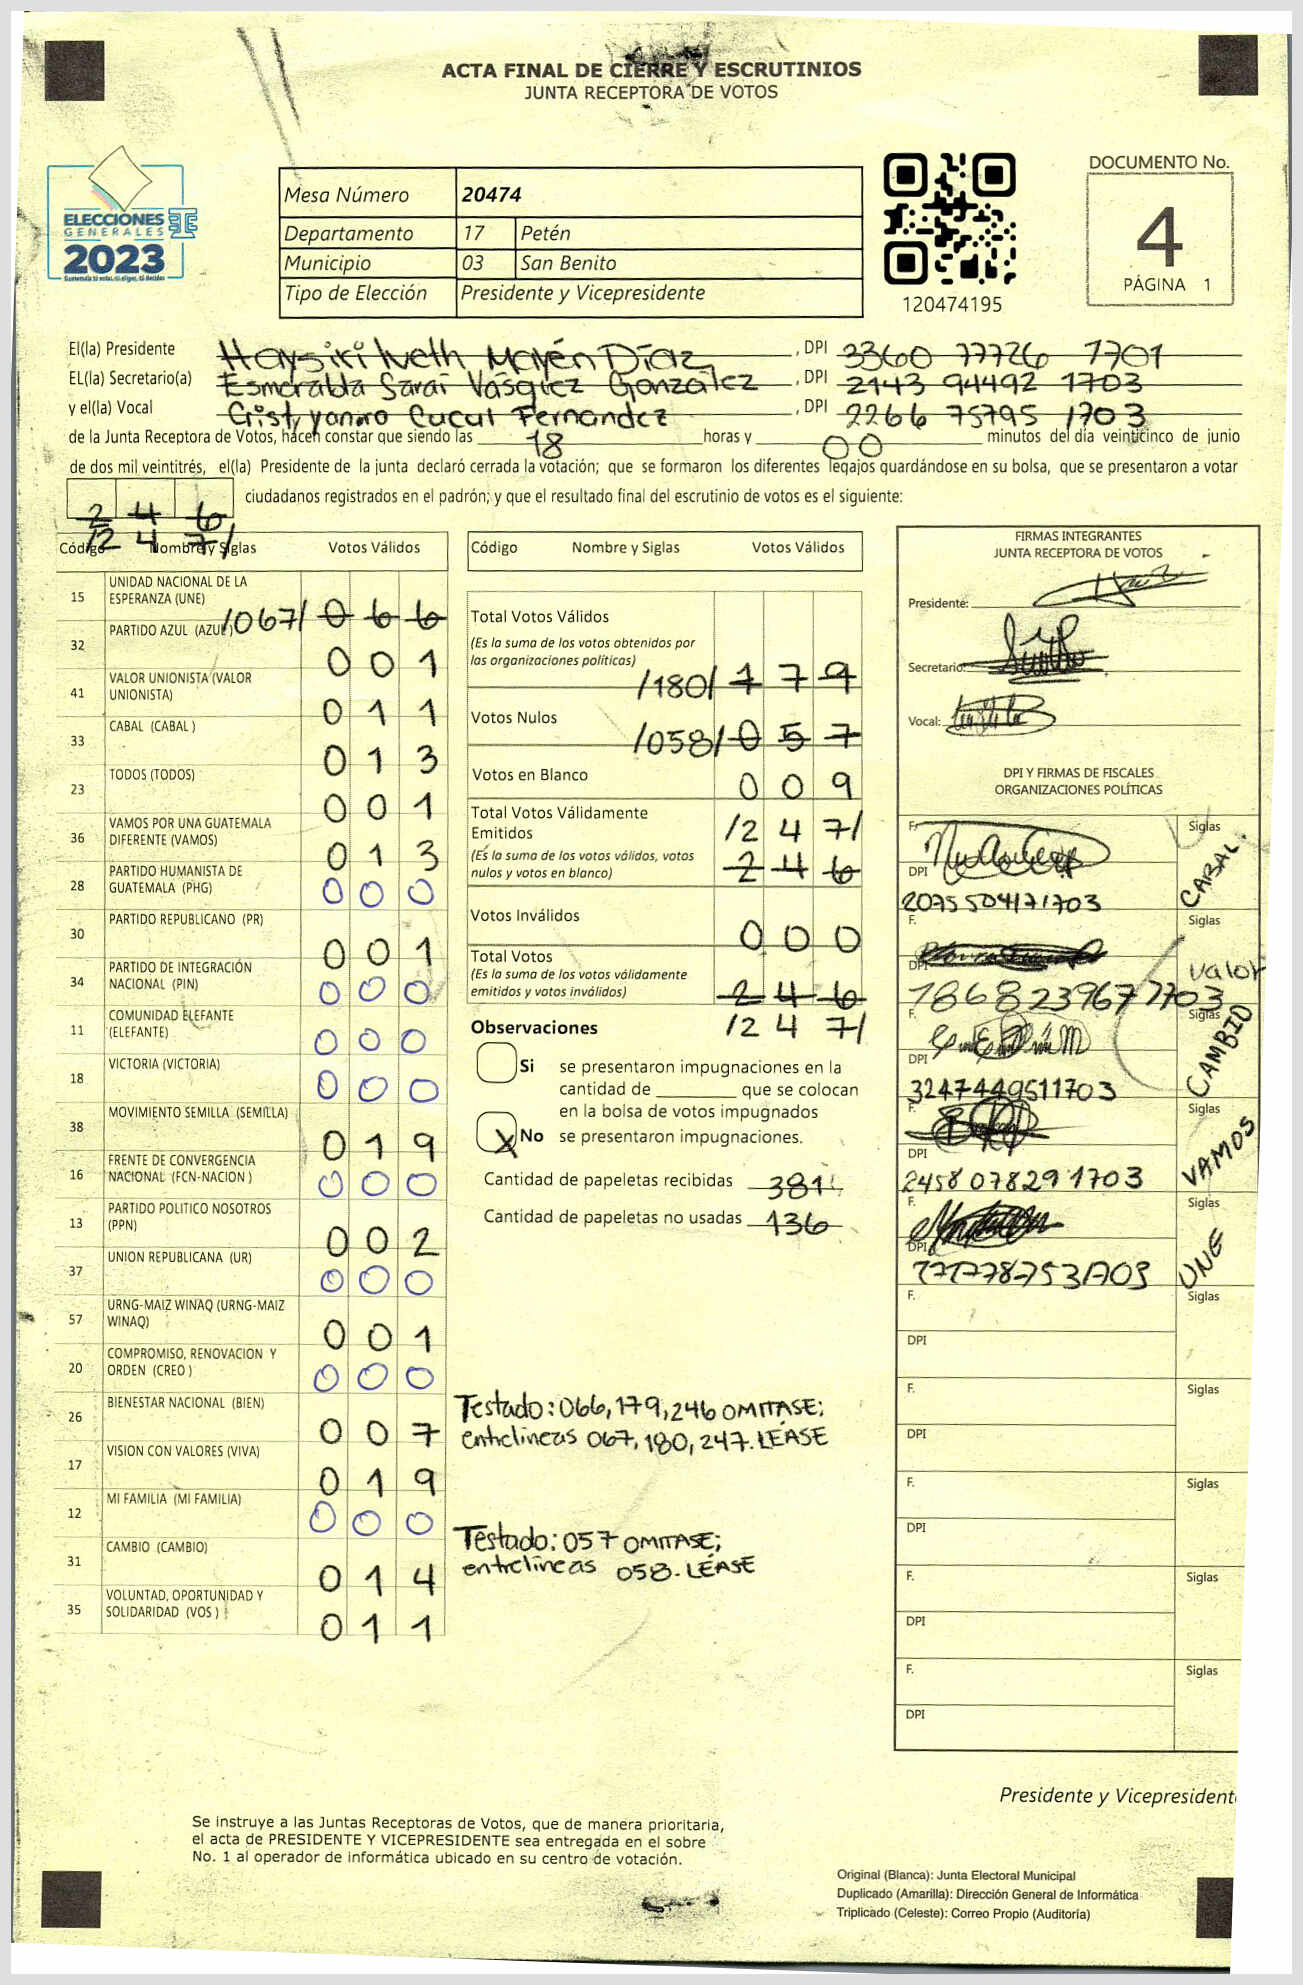 ACTA FINAL DE CIERRE Y ESCRUTINIOS
JUNTA RECEPTORA DE VOTOS
ELECCIONES
GENERALES
2023
Mesa Número 20474
Departamento 17 Petén
Municipio 03 San Benito
Tipo de Elección Presidente y Vicepresidente
120474195
DOCUMENTO No.
4
PÁGINA 1
El(la) Presidente Mayén Díaz , DPI 3360 77726 1701
EL(la) Secretario(a) Esmeralda Sarai Vásquez González , DPI 2143 94492 1703
y el(la) Vocal Cucul Fernandez , DPI 2266 75795 1703
de la Junta Receptora de Votos, hacen constar que siendo las 18 horas y 00 minutos del día veinticinco de junio
de dos mil veintitrés, el(la) Presidente de la junta declaró cerrada la votación; que se formaron los diferentes legajos guardándose en su bolsa, que se presentaron a votar
246 ciudadanos registrados en el padrón; y que el resultado final del escrutinio de votos es el siguiente:
/247/
Código Nombre y Siglas Votos Válidos
15 UNIDAD NACIONAL DE LA
ESPERANZA (UNE) /067/ 066
32 PARTIDO AZUL (AZUL) 001
41 VALOR UNIONISTA (VALOR
UNIONISTA) 011
33 CABAL (CABAL ) 013
23 TODOS (TODOS) 001
36 VAMOS POR UNA GUATEMALA
DIFERENTE (VAMOS) 013
28 PARTIDO HUMANISTA DE
GUATEMALA (PHG) 000
30 PARTIDO REPUBLICANO (PR) 001
34 PARTIDO DE INTEGRACIÓN
NACIONAL (PIN) 000
11 COMUNIDAD ELEFANTE
(ELEFANTE) 000
18 VICTORIA (VICTORIA) 000
38 MOVIMIENTO SEMILLA (SEMILLA) 019
16 FRENTE DE CONVERGENCIA
NACIONAL (FCN-NACION ) 000
13 PARTIDO POLITICO NOSOTROS
(PPN) 002
37 UNION REPUBLICANA (UR) 000
57 URNG-MAIZ WINAQ (URNG-MAIZ
WINAQ) 001
20 COMPROMISO, RENOVACION Y
ORDEN (CREO ) 000
26 BIENESTAR NACIONAL (BIEN) 007
17 VISION CON VALORES (VIVA) 019
12 MI FAMILIA (MI FAMILIA) 000
31 CAMBIO (CAMBIO) 014
35 VOLUNTAD, OPORTUNIDAD Y
SOLIDARIDAD (VOS ) 011
Código Nombre y Siglas Votos Válidos
Total Votos Válidos
(Es la suma de los votos obtenidos por
las organizaciones políticas)
/180/ 179
Votos Nulos /058/ 057
Votos en Blanco 009
Total Votos Válidamente
Emitidos /247/
(Es la suma de los votos válidos, votos
nulos y votos en blanco) 246
Votos Inválidos 000
Total Votos
(Es la suma de los votos válidamente
emitidos y votos inválidos) 246
Observaciones /247/
Si se presentaron impugnaciones en la
cantidad de que se colocan
en la bolsa de votos impugnados
X No se presentaron impugnaciones.
Cantidad de papeletas recibidas 381
Cantidad de papeletas no usadas 136
Testado: 066, 179, 246 OMITASE;
entrelineas 067, 180, 247. LÉASE
Testado: 057 OMITASE;
entrelineas 058. LÉASE
FIRMAS INTEGRANTES
JUNTA RECEPTORA DE VOTOS
Presidente:
Secretario:
Vocal:
DPI Y FIRMAS DE FISCALES
ORGANIZACIONES POLÍTICAS
F. Siglas CABAL.
DPI 2075504171703
F. Siglas Valor
DPI 1868239671703
F. Siglas CAMBIO
DPI 3247449511703
F. Siglas VAMOS
DPI 2458 07829 1703
F. Siglas UNE
DPI
F. Siglas
DPI
F. Siglas
DPI
F. Siglas
DPI
F. Siglas
DPI
F. Siglas
DPI
Presidente y Vicepresident
Se instruye a las Juntas Receptoras de Votos, que de manera prioritaria,
el acta de PRESIDENTE Y VICEPRESIDENTE sea entregada en el sobre
No. 1 al operador de informática ubicado en su centro de votación.
Original (Blanca): Junta Electoral Municipal
Duplicado (Amarilla): Dirección General de Informática
Triplicado (Celeste): Correo Propio (Auditoría)